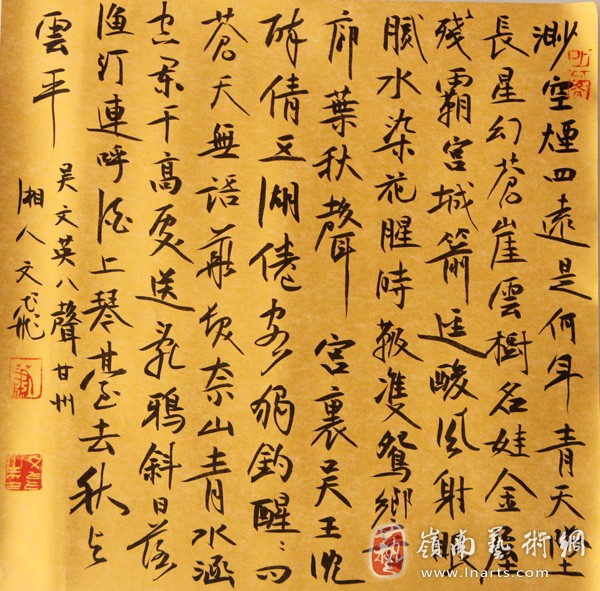 渺空煙四遠是何年青天墜
長星幻蒼崖雲樹名娃金屋
殘霸宮城箭逕酸風射眼
膩水染花腥時靸雙鴛響
廊葉秋聲 宮裏吳王沈
醉倩五湖倦客獨釣醒〻問
蒼天無語華髮奈山青水涵
空闌干高處送亂鴉斜日落
漁汀連呼酒上琴臺去秋與
雲平
吳文英八聲甘州
湘人文飛
嶺南藝術網
www.lnarts.com